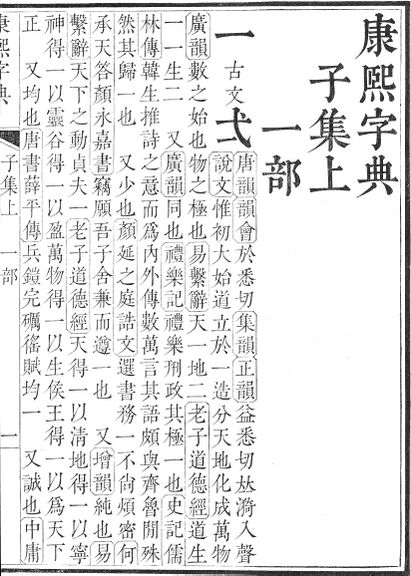 康熙字典
子集上
一部
一 古文 弌
唐韻韻會於悉切集韻正韻益悉切𠀤漪入聲
說文惟初大始道立於一造分天地化成萬物
廣韻數之始也物之極也易繫辭天一地二老子道德經道生
一一生二 又廣韻同也禮樂記禮樂刑政其極一也史記儒
林傳韓生推詩之意而爲內外傳數萬言其語頗與齊魯閒殊
然其歸一也 又少也顏延之庭誥文選書務一不尙煩密何
承天答顏永嘉書竊願吾子舍兼而遵一也 又增韻純也易
繫辭天下之動貞夫一老子道德經天得一以清地得一以寧
神得一以靈谷得一以盈萬物得一以生侯王得一以爲天下
正 又均也唐書薛平傳兵鎧完礪徭賦均一 又誠也中庸
康熙字典 子集上 一部 一